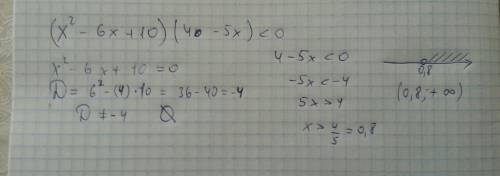 (x² - 6x + 10)(4 - 5x) < 0
x² - 6x + 10 = 0
D = 6² - (4)·10 = 36 - 40 = -4
D ≠ -4 ∅
4 - 5x < 0
-5x < -4
5x > 4
x > 4/5 = 0,8
0,8
(0,8; +∞)